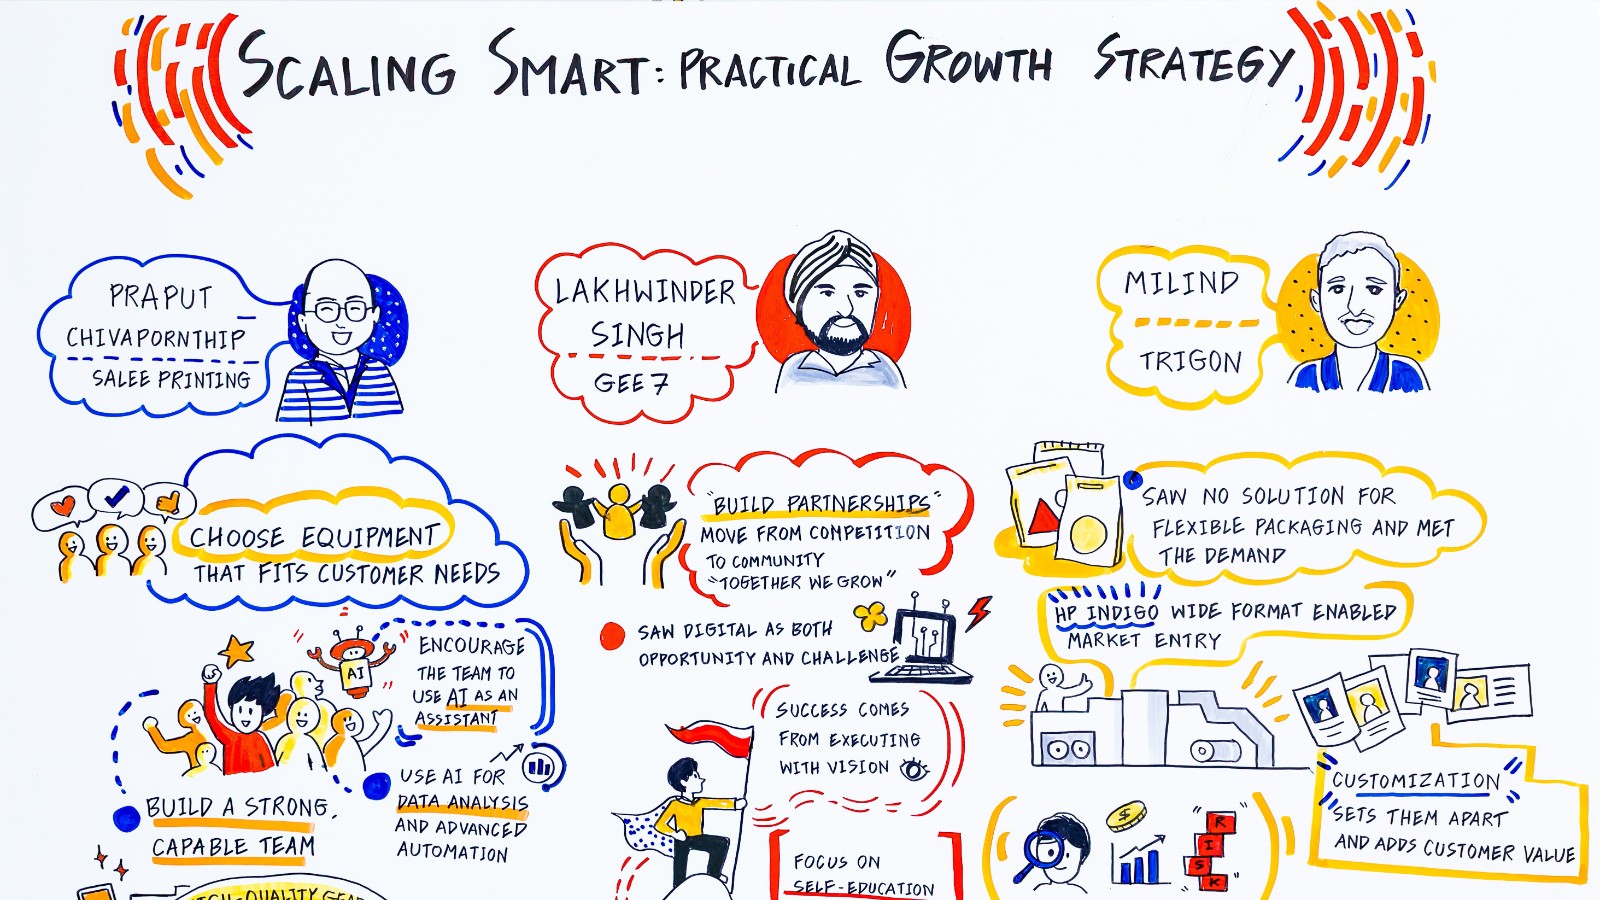 SCALING SMART: PRACTICAL GROWTH STRATEGY
PRAPUT
CHIVAPORNTHIP
SALEE PRINTING
CHOOSE EQUIPMENT
THAT FITS CUSTOMER NEEDS
AI
ENCOURAGE
THE TEAM TO
USE AI AS AN
ASSISTANT
USE AI FOR
DATA ANALYSIS
AND ADVANCED
AUTOMATION
BUILD A STRONG,
CAPABLE TEAM
LAKHWINDER
SINGH
GEE 7
"BUILD PARTNERSHIPS"
MOVE FROM COMPETITION
TO COMMUNITY
"TOGETHER WE GROW"
SAW DIGITAL AS BOTH
OPPORTUNITY AND CHALLENGE
SUCCESS COMES
FROM EXECUTING
WITH VISION
FOCUS ON
SELF-EDUCATION
MILIND
TRIGON
SAW NO SOLUTION FOR
FLEXIBLE PACKAGING AND MET
THE DEMAND
HP INDIGO WIDE FORMAT ENABLED
MARKET ENTRY
CUSTOMIZATION
SETS THEM APART
AND ADDS CUSTOMER VALUE
"RISK"